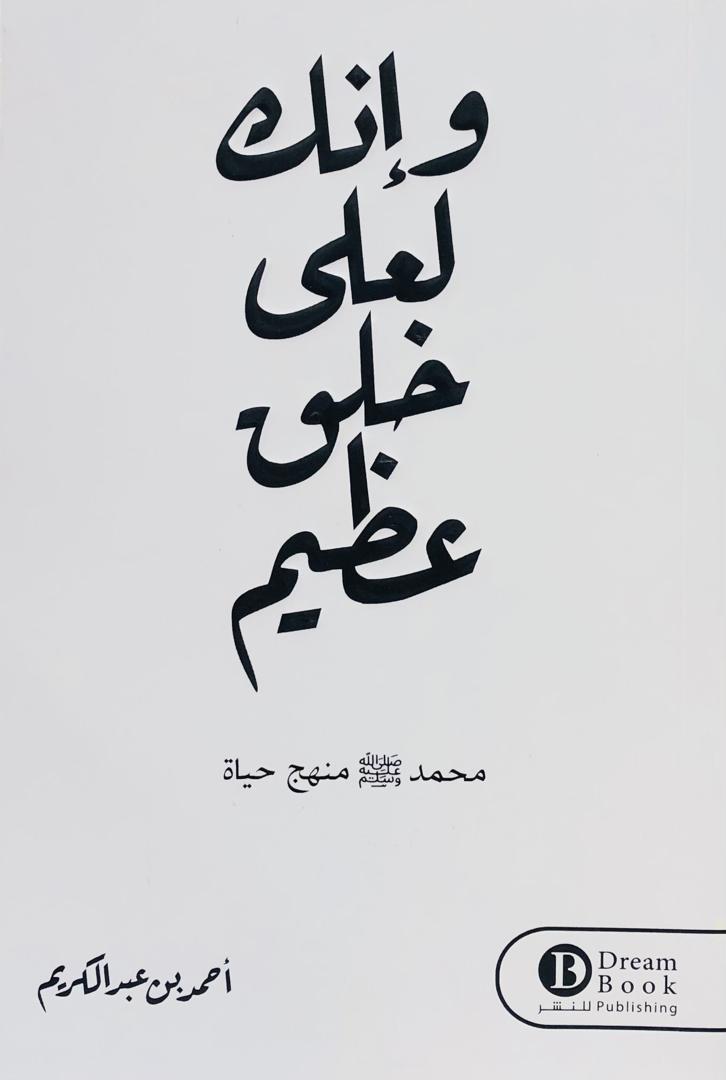 وإنك
لعلى
خلق
عظيم
محمد ﷺ منهج حياة
أحمد بن عبدالكريم
B
Dream
Book
للنشر Publishing